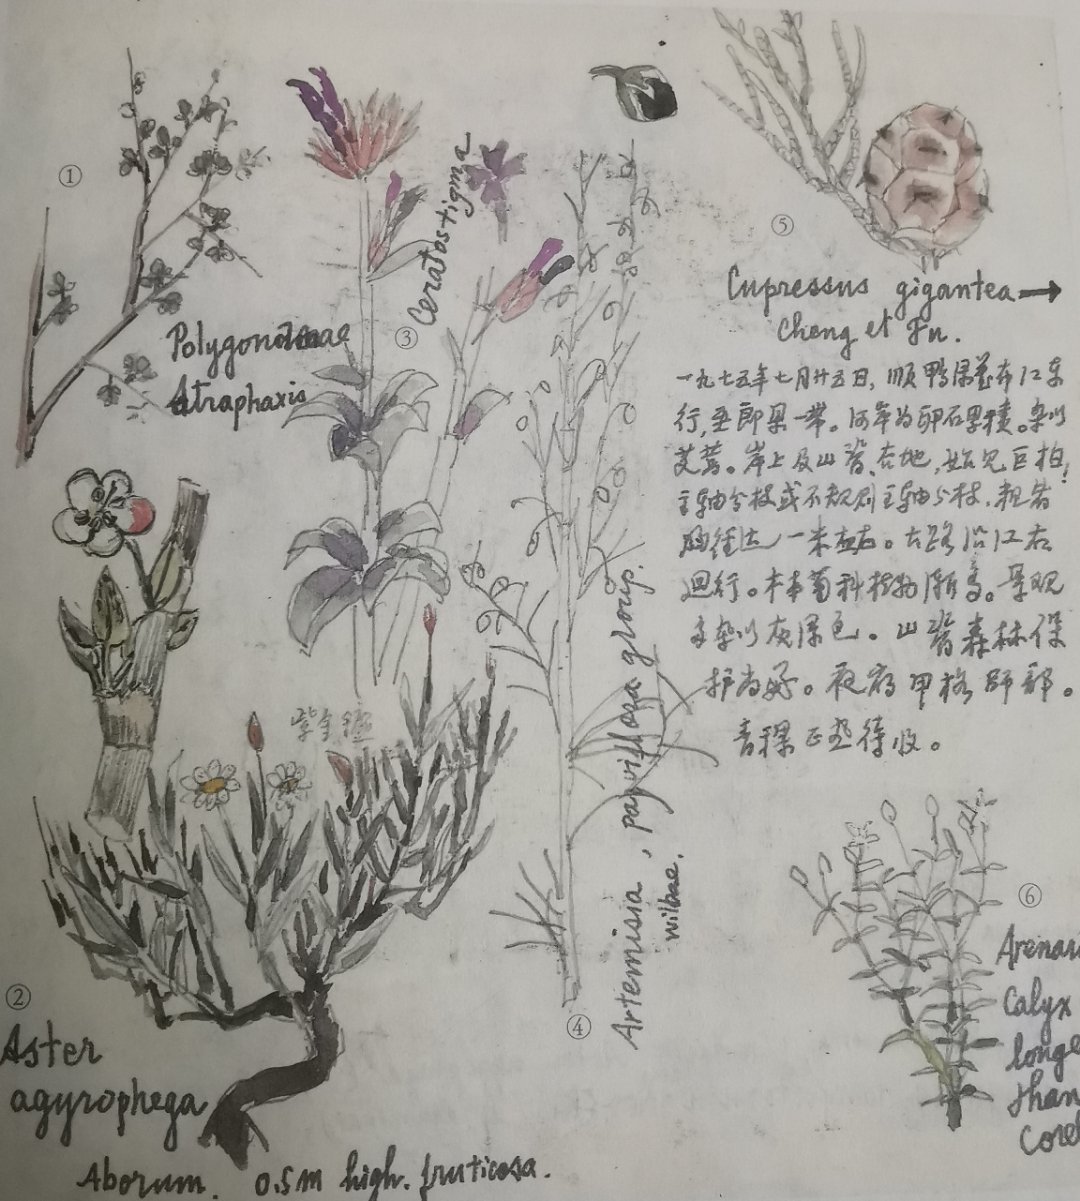 ①
Polygonaceae
Atraphaxis
③
Ceratostigma
⑤
Cupressus gigantea →
Cheng et Fu.
一九七五年七月廿五日，顺雅鲁布江东
行，至郎县一带。河岸为卵石累積。杂以
艾蒿。岸上及山脊、台地，始见巨柏，
主轴分枝或不规则主轴分枝，粗者
胸径达一米左右。公路沿江右
迴行。禾本科植物渐多。景观
多杂以灰绿色。山脊森林保
护尚好。夜宿甲格师部。
青稞正登待收。
紫金标
Artemisia, parviflora group.
wilbae.
④
②
Aster
agyrophega
Aborum. 0.5m high. fruticosa.
⑥
Arenari
Calyx
longe
than
Corol